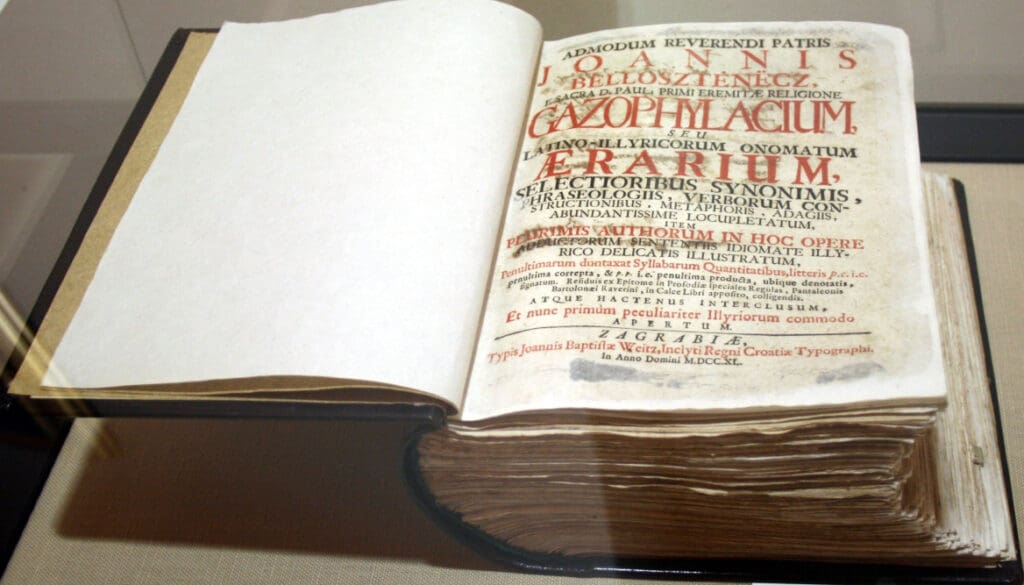 ADMODUM REVERENDI PATRIS
JOANNIS
BELLOSZTENËCZ,
E SACRA D. PAUL; PRIMI EREMITÆ RELIGIONE
GAZOPHYLACIUM,
SEU
LATINO-ILLYRICORUM ONOMATUM
ÆRARIUM,
SELECTIORIBUS SYNONIMIS,
PHRASEOLOGIIS, VERBORUM CON-
STRUCTIONIBUS, METAPHORIS, ADAGIIS,
ABUNDANTISSIME LOCUPLETATUM,
ITEM
PLURIMIS AUTHORUM IN HOC OPERE
ADDUCTORUM SENTENTIIS IDIOMATE ILLY-
RICO DELICATIS ILLUSTRATUM,
Penultimarum duntaxat Syllabarum Quantitatibus, litteris p.c. i.e.
penultima correpta, & p.p. i.e. penultima producta, ubique denotatis,
signatum. Residuis ex Epitome in Prosodiæ speciales Regulas, Pantaleonis
Bartolonæi Raverini, in Calce Libri apposito, colligendis.
ATQUE HACTENUS INTERCLUSUM,
Et nunc primùm peculiariter Illyriorum commodo
APERTUM.
ZAGRABIÆ,
Typis Joannis Baptistæ Weitz, Inclyti Regni Croatiæ Typographi.
In Anno Domini M.DCC.XL.